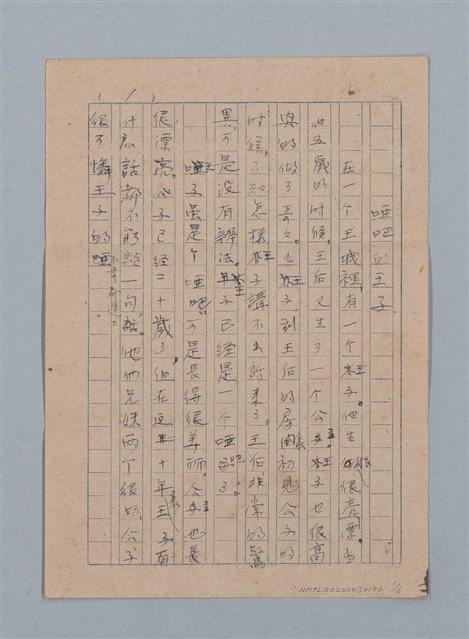 啞吧的王子
在一个王城裡，有一个王子。他生得很亮漂。当
他五歲的时候，王后又生了一个公主。王子也很高
興的做了哥哥。王子到王后的房間初見公主的
时候，不知怎樣王子講不出話來了。王后非常的驚
異，可是没有辦法。王子已經是一个啞吧了。
啞子虽是个啞吧，可是長得很美丽。公主也長
很漂亮。公子已經二十歲了，但在這十年王子有
什広話都不能說一句。他他兄妹两个很好，公子
很可憐王子的啞
( 1 )
NMTL20200030196 1/6